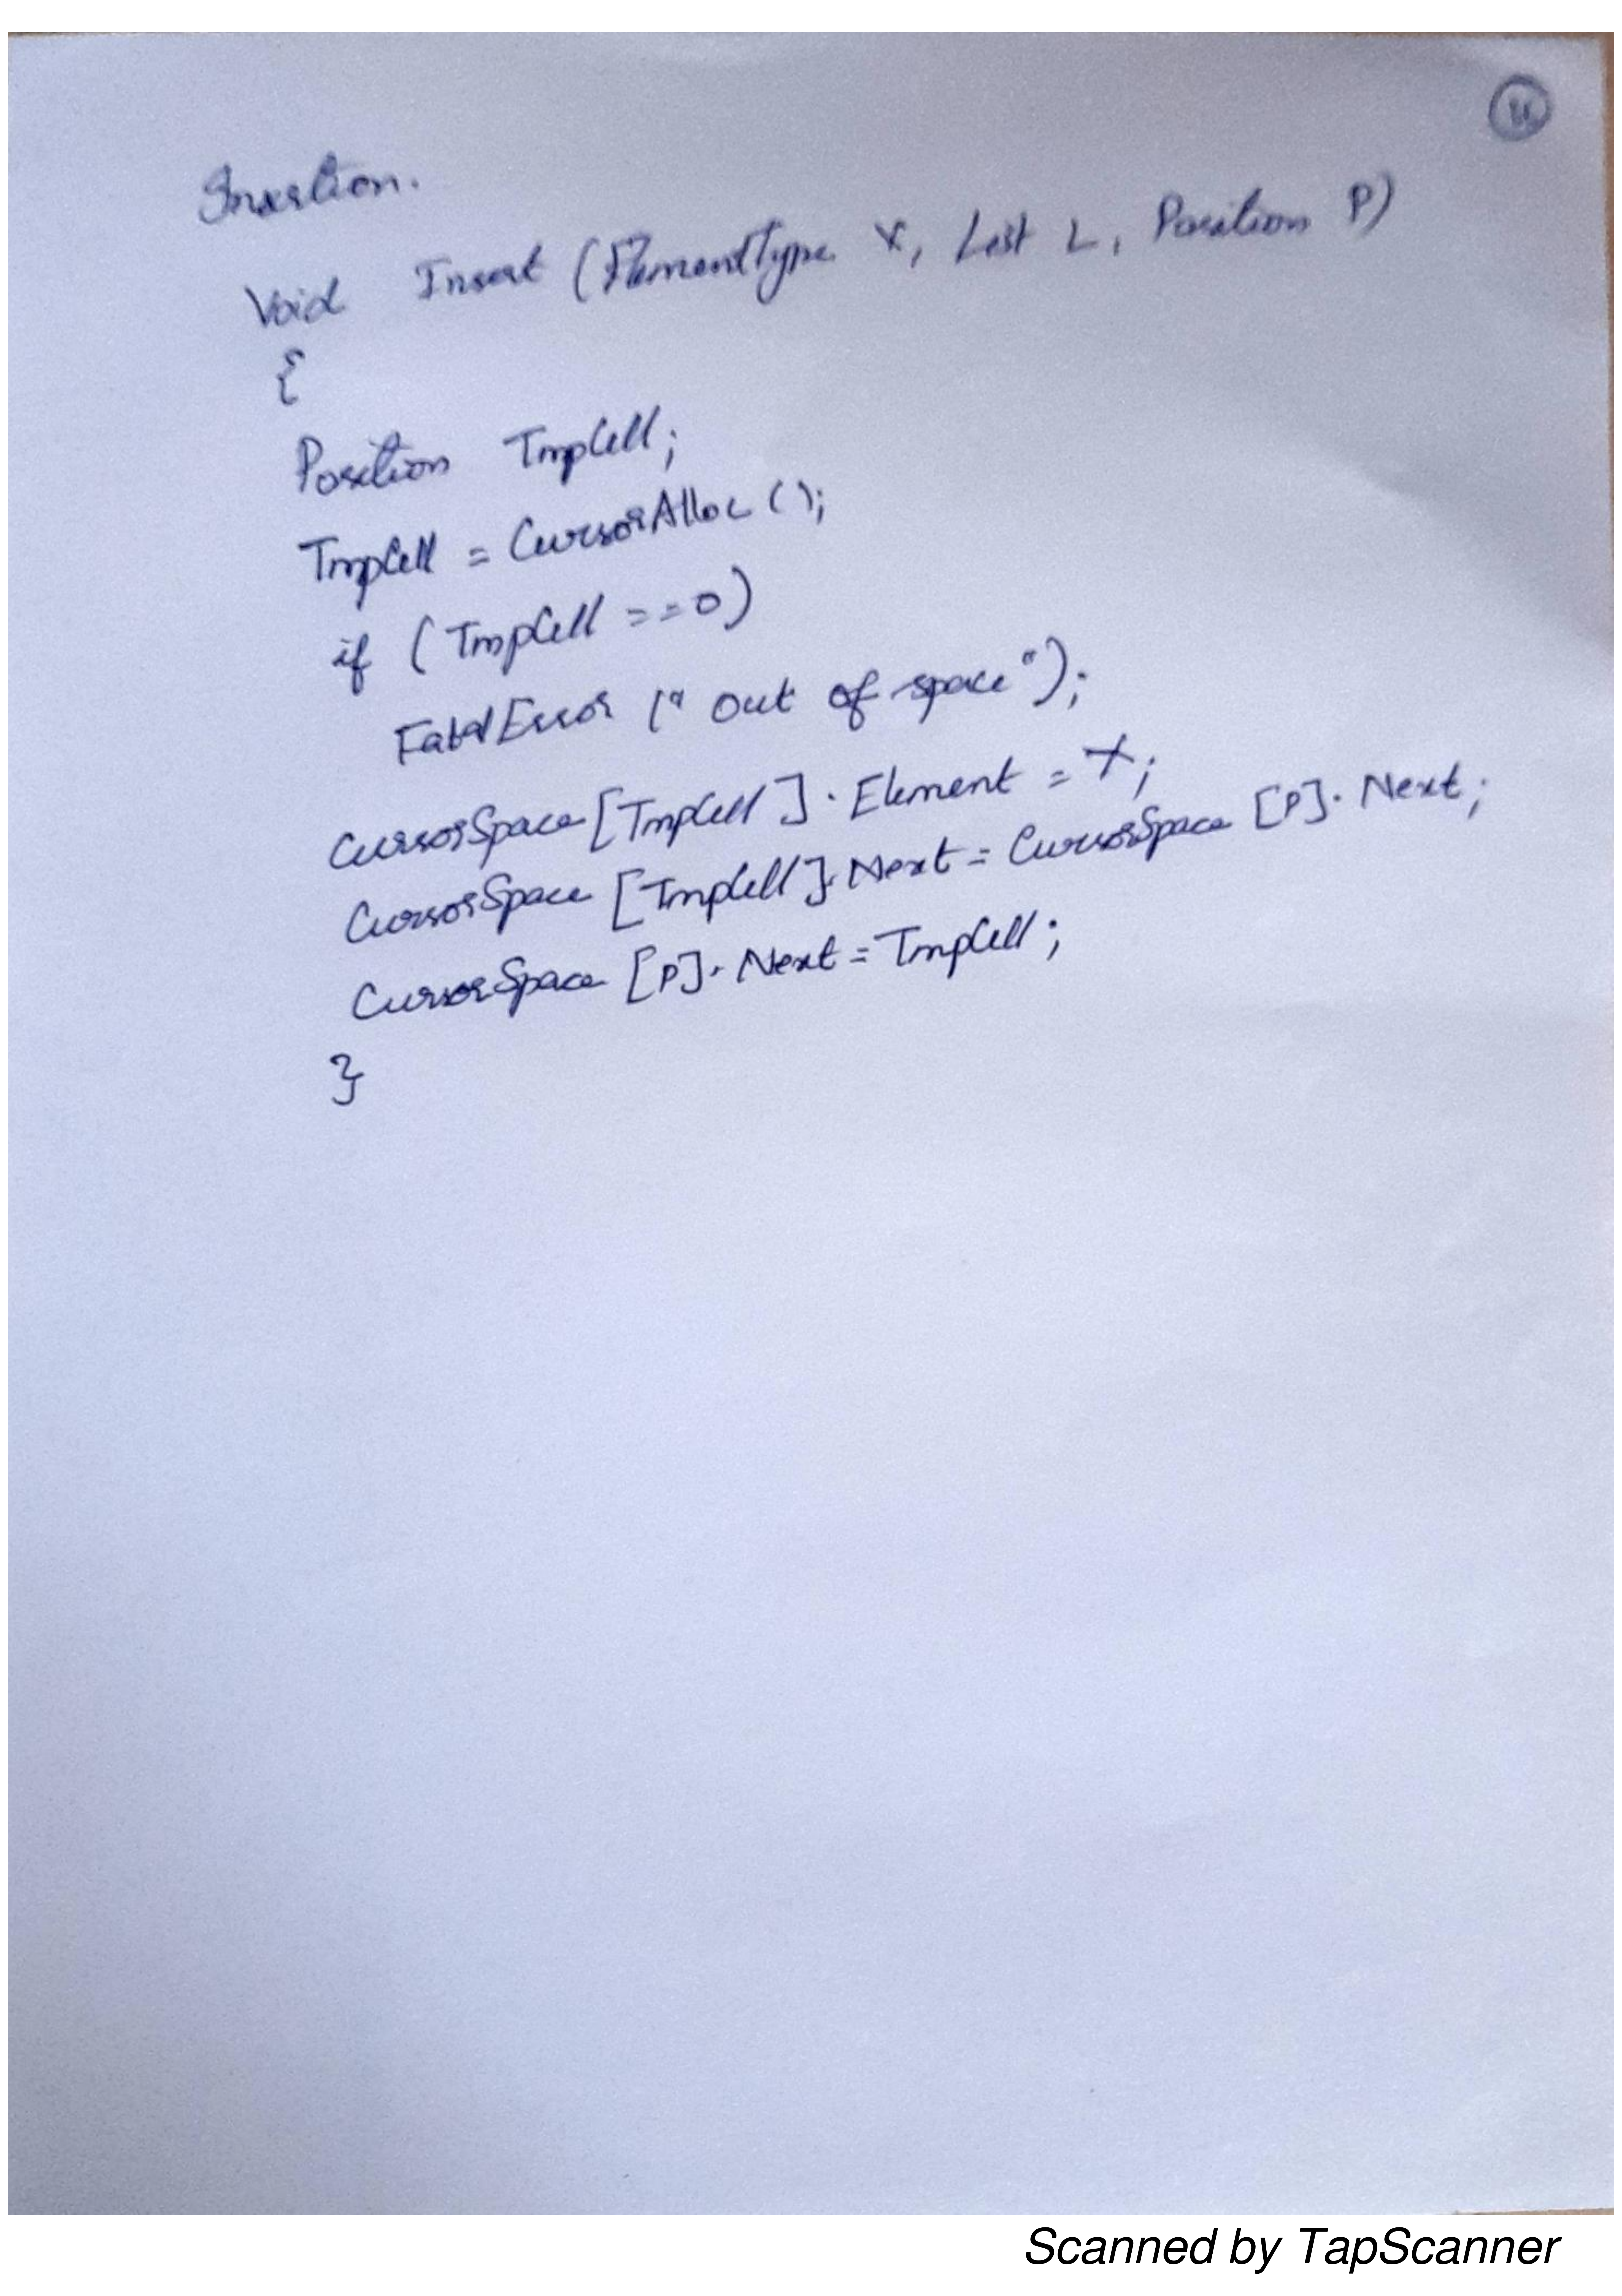 Insertion.
Void Insert (ElementType X, List L, Position P)
{
Position TmpCell;
TmpCell = CursorAlloc ();
if (TmpCell ==0)
FatalError (" out of space");
CursorSpace [TmpCell]. Element = X;
CursorSpace [TmpCell]. Next = CursorSpace [P]. Next;
CursorSpace [P]. Next = TmpCell;
}
Scanned by TapScanner